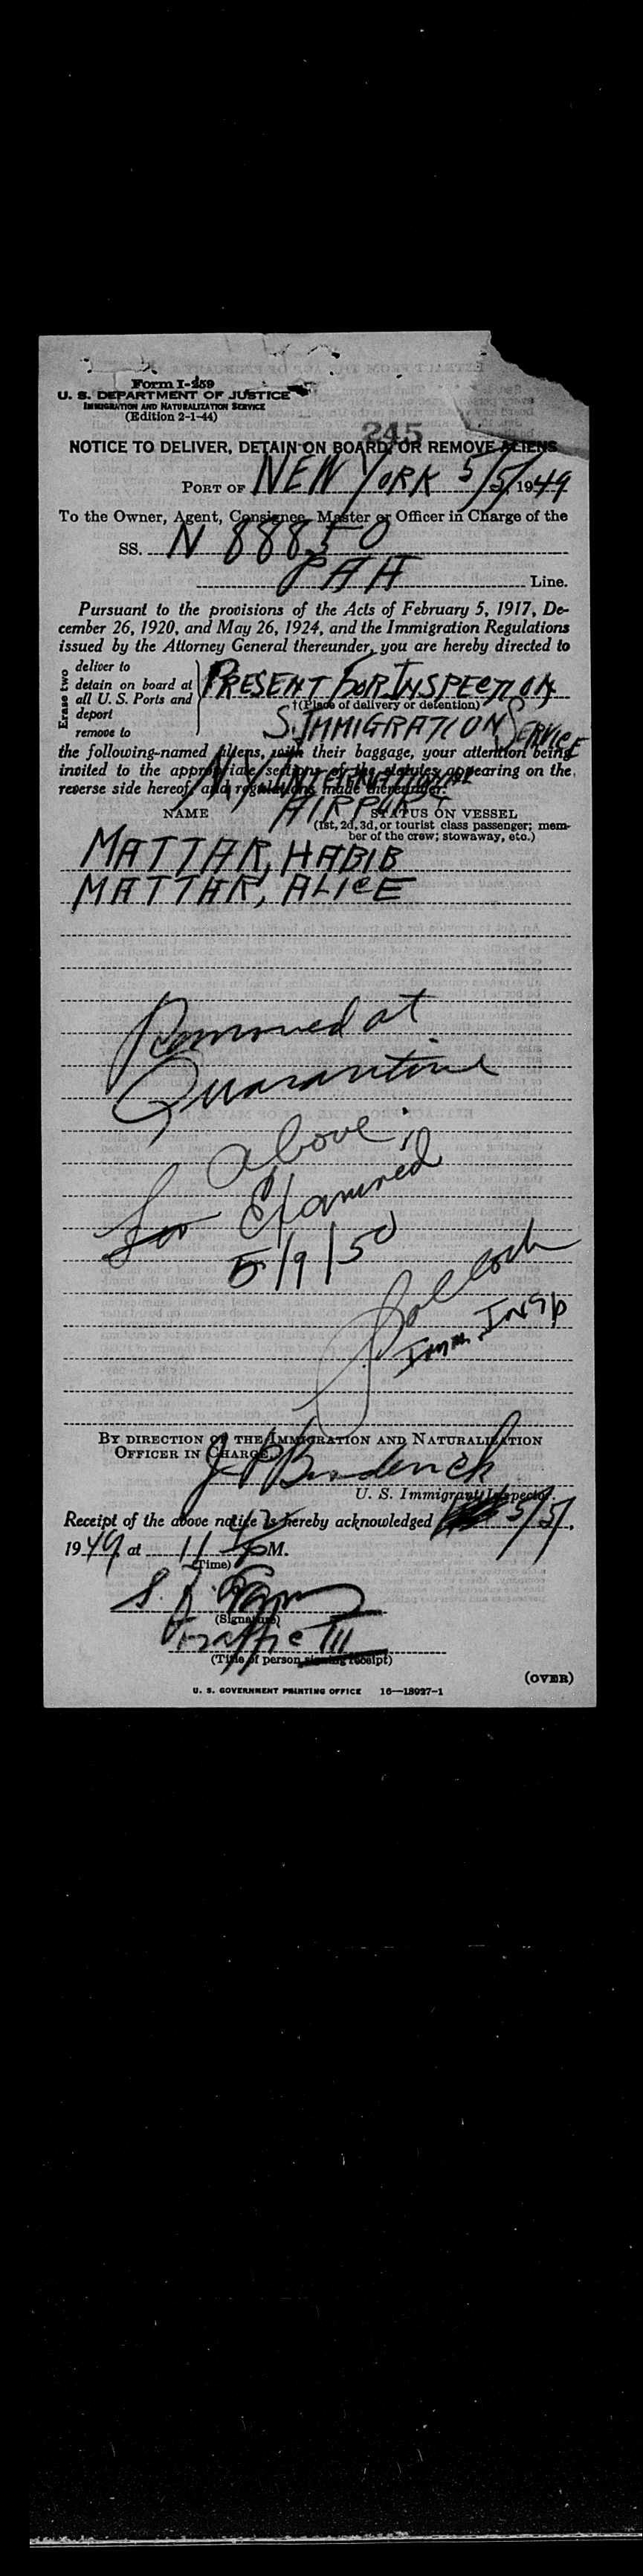 Form I-259
U. S. DEPARTMENT OF JUSTICE
IMMIGRATION AND NATURALIZATION SERVICE
(Edition 2-1-44)
245
NOTICE TO DELIVER, DETAIN ON BOARD, OR REMOVE ALIENS
PORT OF NEW YORK 5/5/, 1949
To the Owner, Agent, Consignee, Master or Officer in Charge of the
SS. N 88850
PAA Line.
Pursuant to the provisions of the Acts of February 5, 1917, De-
cember 26, 1920, and May 26, 1924, and the Immigration Regulations
issued by the Attorney General thereunder, you are hereby directed to
Erase two
deliver to
detain on board at
all U. S. Ports and
deport
remove to
PRESENT FOR INSPECTION
†(Place of delivery or detention)
IMMIGRATION SERVICE
the following-named aliens, with their baggage, your attention being
invited to the appropriate sections of the statutes appearing on the
reverse side hereof, and regulations made thereunder:
NY INTERNATIONAL
AIRPORT
NAME
STATUS ON VESSEL
(1st, 2d, 3d, or tourist class passenger; mem-
ber of the crew; stowaway, etc.)
MATTAR, HABIB
MATTAR, ALICE
at
Quarantine
above
Examined
5/9/50
Imm. Insp
BY DIRECTION OF THE IMMIGRATION AND NATURALIZATION
OFFICER IN CHARGE
U. S. Immigrant Inspector.
Receipt of the above notice is hereby acknowledged 5/5/,
1949, at 11 PM.
(Time)
(Signature)
Traffic
(Title of person signing receipt)
(OVER)
U. S. GOVERNMENT PRINTING OFFICE 16—18927-1